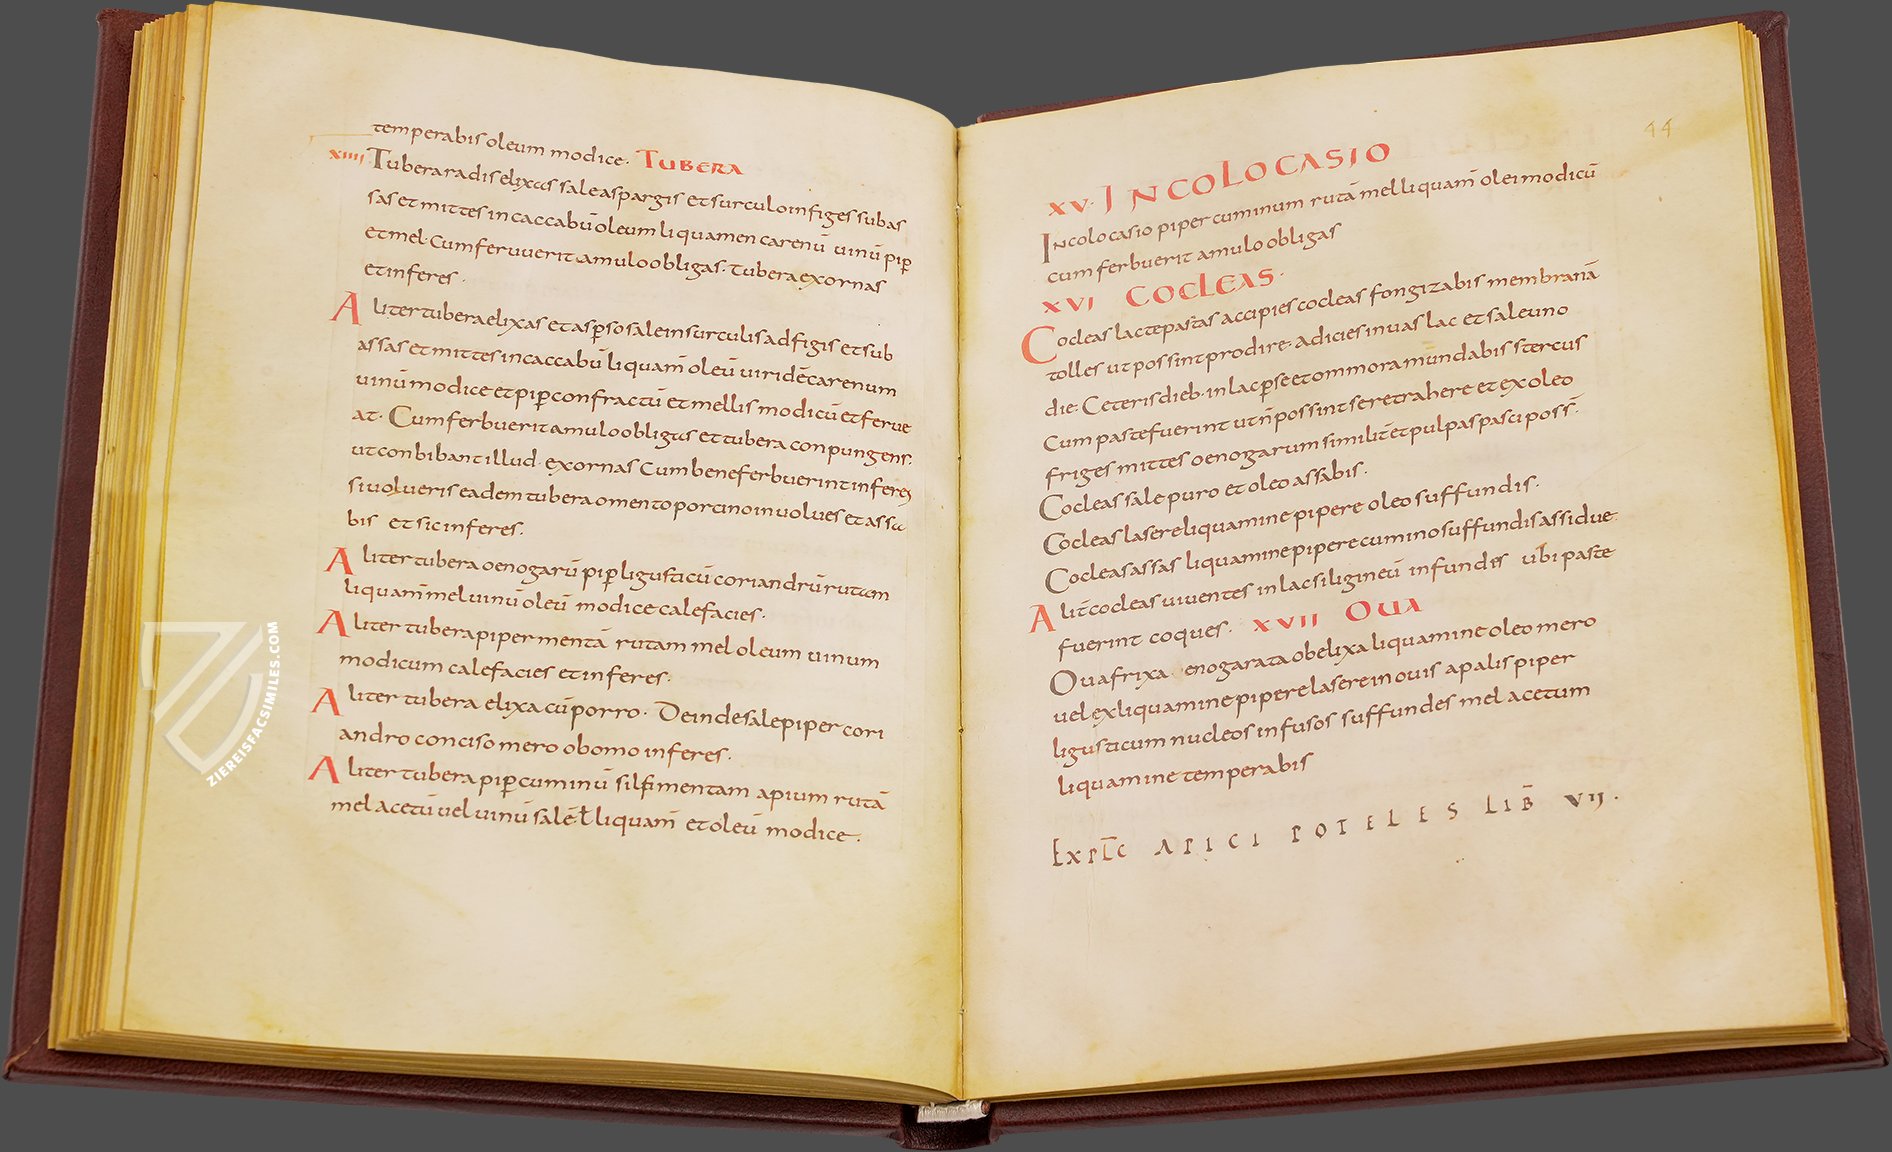 temperabis oleum modice. TUBERA
XIIII Tubera radis elixas sale aspargis et surculo infiges subas
sas et mittes in caccabū oleum liquamen carenū uinū pip̄
et mel. Cum feruuerit amulo obligas. tubera exornas
et inferes.
Aliter tubera elixas et asp̄so sale in surculis adfigis et sub
assas et mittes in caccabū liquam̄ oleū uiridē carenum
uinū modice et pip̄ confractū et mellis modicū et ferue
at. Cum ferbuerit amulo obligas et tubera conpungens.
ut conbibant illud. exornas Cum bene ferbuerint inferes
si uolueris eadem tubera omento porcino inuolues et assa
bis et sic inferes.
Aliter tubera oenogarū pip̄ ligusticū coriandrū rutam
liquam̄ mel uinū oleū modice calefacies.
Aliter tubera piper mentā rutam mel oleum uinum
modicum calefacies et inferes.
Aliter tubera elixa cū porro. Deinde sale piper cori
andro conciso mero obomo inferes.
Aliter tubera pip̄ cuminū silfi mentam apium rutā
mel acetū uel uinū salē ł liquam̄ et oleū modice.
44
XV. IN COLOCASIO
In colocasio piper cuminum rutā mel liquam̄ olei modicū
cum ferbuerit amulo obligas
XVI COCLEAS.
Cocleas lacte pastas accipies cocleas fongizabis membranā
tolles ut possint prodire. adicies in uas lac et sale uno
die. Ceteris dieb. in lac p̄se et ommora mundabis stercus
Cum paste fuerint ut n̄ possint se retrahere et ex oleo
friges mittes oenogarum similit̄ et pulpas pasci poss̄.
Cocleas sale puro et oleo assabis.
Cocleas lasere liquamine pipere oleo suffundis.
Cocleas assas liquamine pipere cumino suffundis assidue.
Alit̄ cocleas uiuentes in lac siligineū infundis ubi paste
fuerint coques. XVII OUA
Oua frixa enogarata obelixa liquamine oleo mero
uel ex liquamine pipere lasere in ouis apalis piper
ligusticum nucleos infusos suffundes mel acetum
liquamine temperabis
EXPLC̄ APICI POTELES LIB̄ VIJ.
ZIEREISFACSIMILES.COM